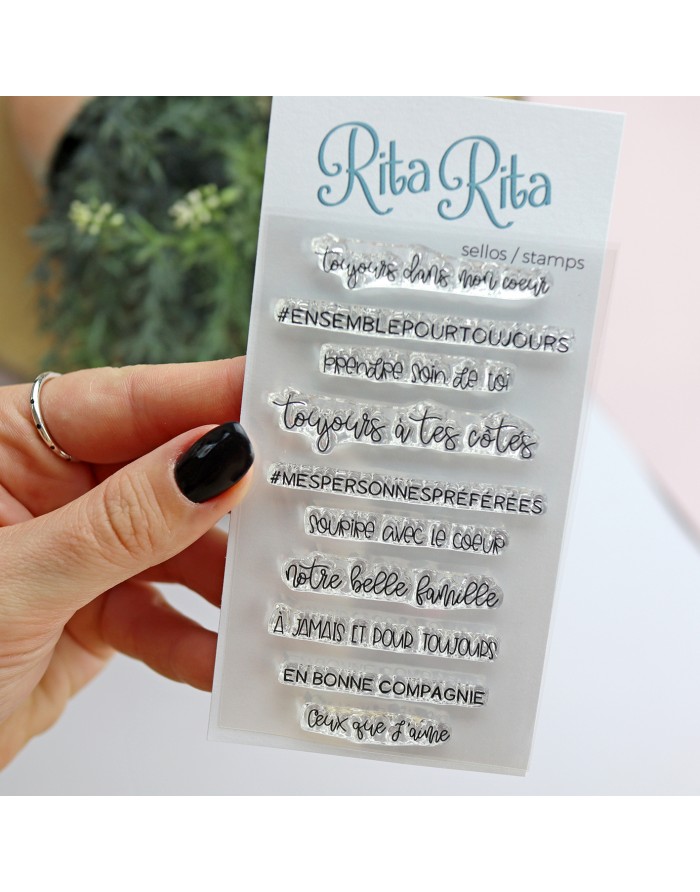 Rita Rita
sellos / stamps
toujours dans mon coeur
#ENSEMBLEPOURTOUJOURS
prendre soin de toi
toujours à tes côtés
#MESPERSONNESPRÉFÉRÉES
sourire avec le coeur
notre belle famille
À JAMAIS ET POUR TOUJOURS
EN BONNE COMPAGNIE
Ceux que j'aime